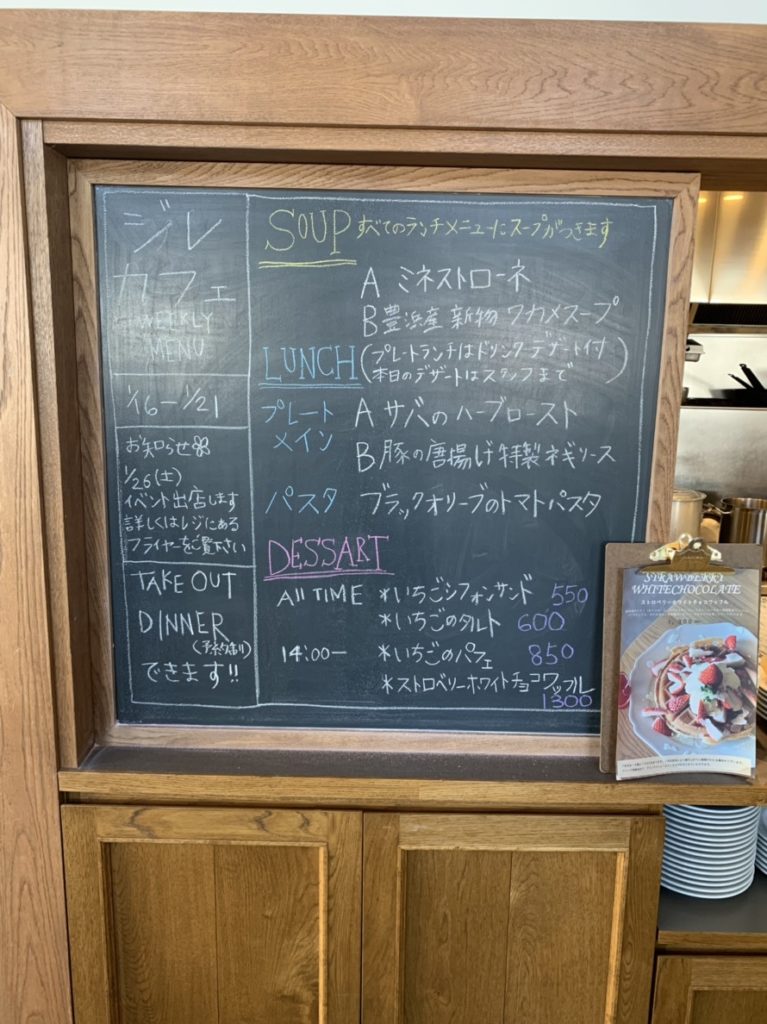 ジレ
カフェ
WEEKLY
MENU
1/16-1/21
お知らせ
1/26(土)
イベント出店します
詳しくはレジにある
フライヤーをご覧下さい
TAKE OUT
DINNER
できます!!
SOUP すべてのランチメニューにスープがつきます
A ミネストローネ
B 豊浜産 新物 ワカメスープ
LUNCH (プレートランチはドリンク デザート付
本日のデザートはスタッフまで)
プレート A サバのハーブロースト
メイン B 豚の唐揚げ 特製ネギソース
パスタ ブラックオリーブのトマトパスタ
DESSART
All TIME *いちごシフォンサンド 550
*いちごのタルト 600
14:00- *いちごのパフェ 850
*ストロベリーホワイトチョコワッフル
1300
STRAWBERRY
WHITECHOCOLATE
ストロベリーホワイトチョコワッフル